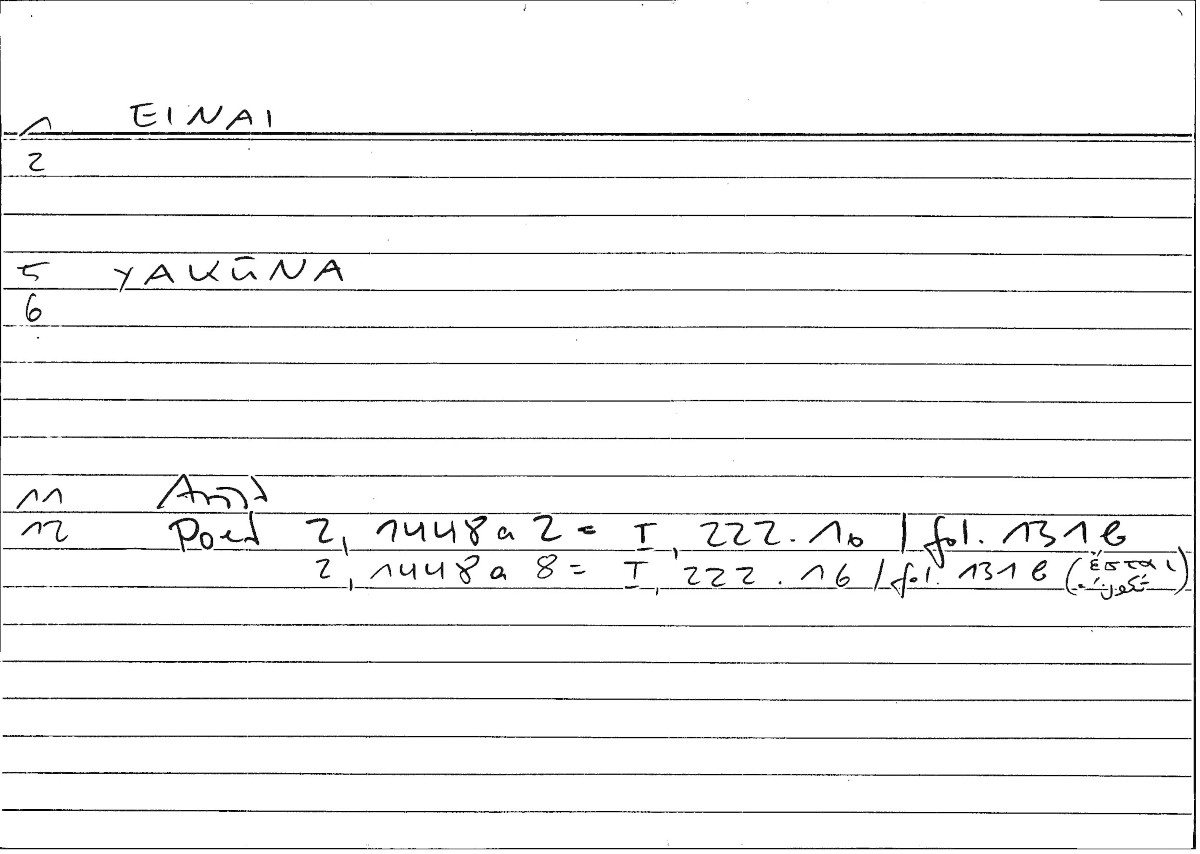 1 EINAI
2
5 YAKŪNA
6
11 Arist
12 Poet 2, 1448a 2 = I, 222.10 / fol. 131b
2, 1448a 8 = I, 222.16 / fol. 131b (ἔσται)